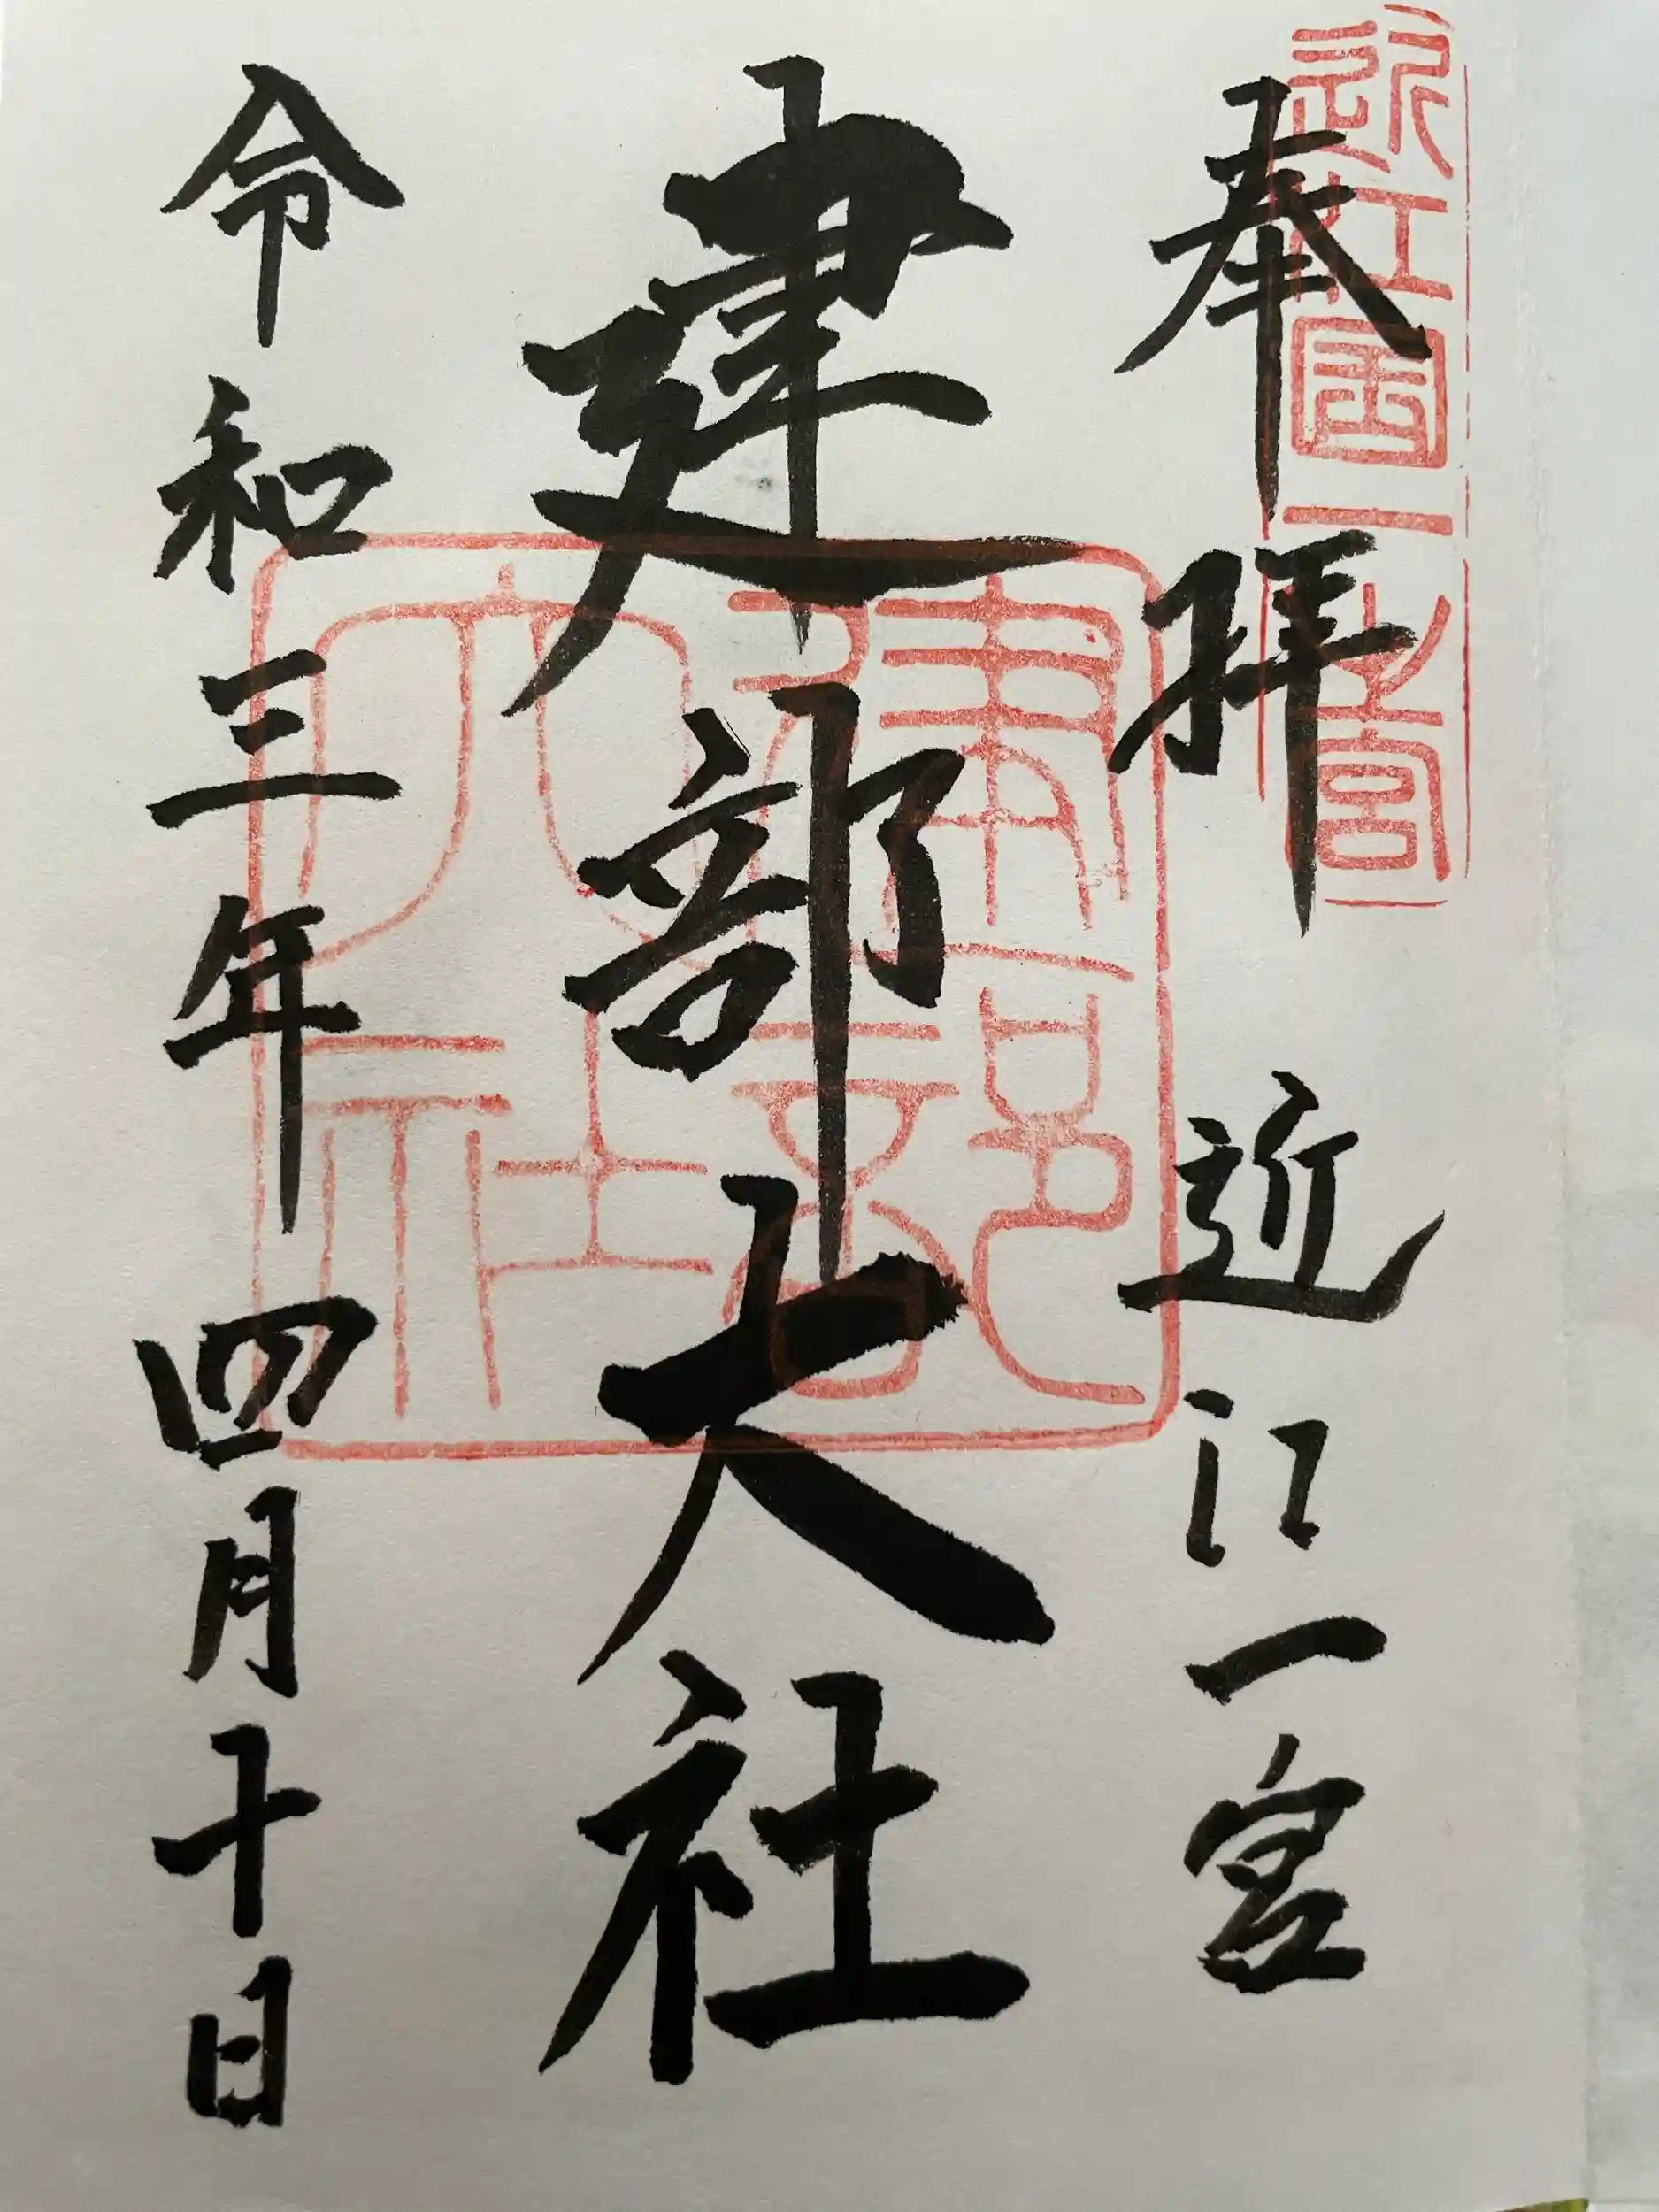 近江国一之宮
奉拝 近江一宮
建部大社
建部大社
令和三年 四月十日